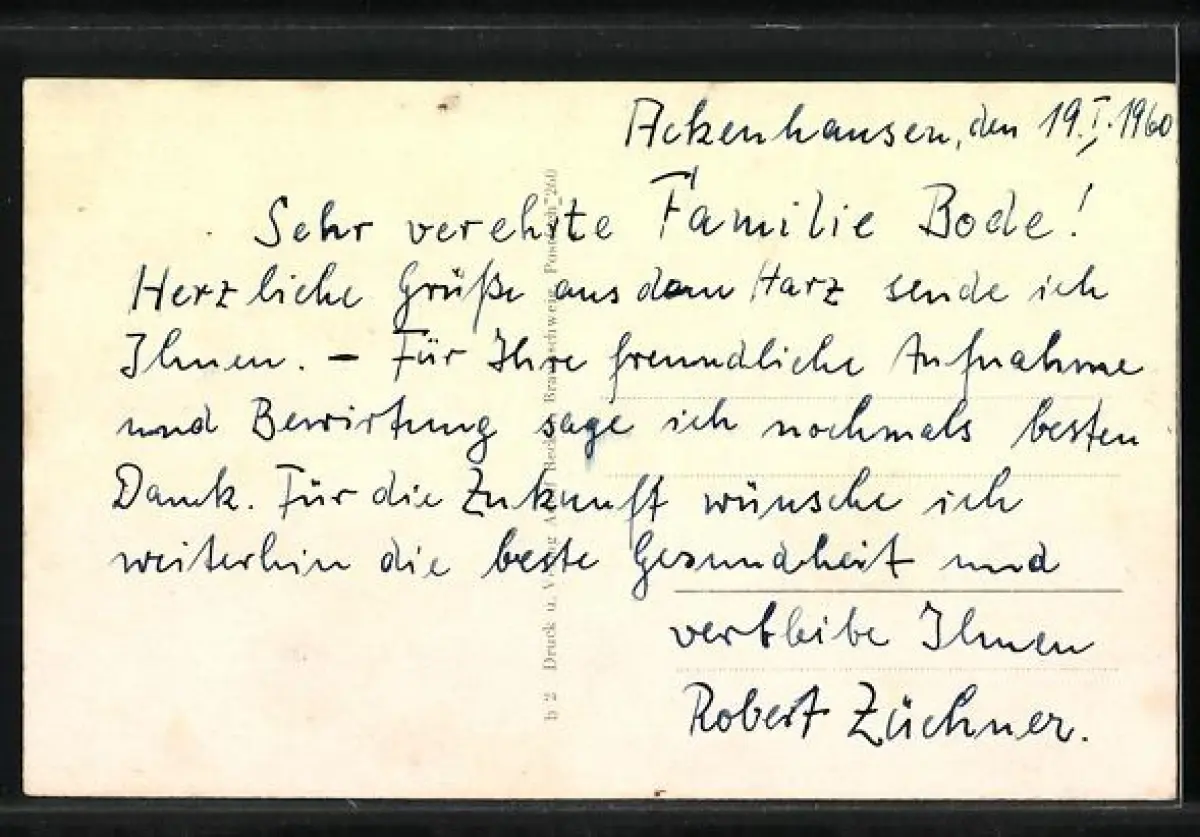 Ackenhausen, den 19.I.1960
Sehr verehrte Familie Bode!
Herzliche Grüße aus dem Harz sende ich
Ihnen. – Für Ihre freundliche Aufnahme
und Bewirtung sage ich nochmals besten
Dank. Für die Zukunft wünsche ich
weiterhin die beste Gesundheit und
verbleibe Ihnen
Robert Züchner.
b 2 Druck u. Braunschweig, Postfach 260